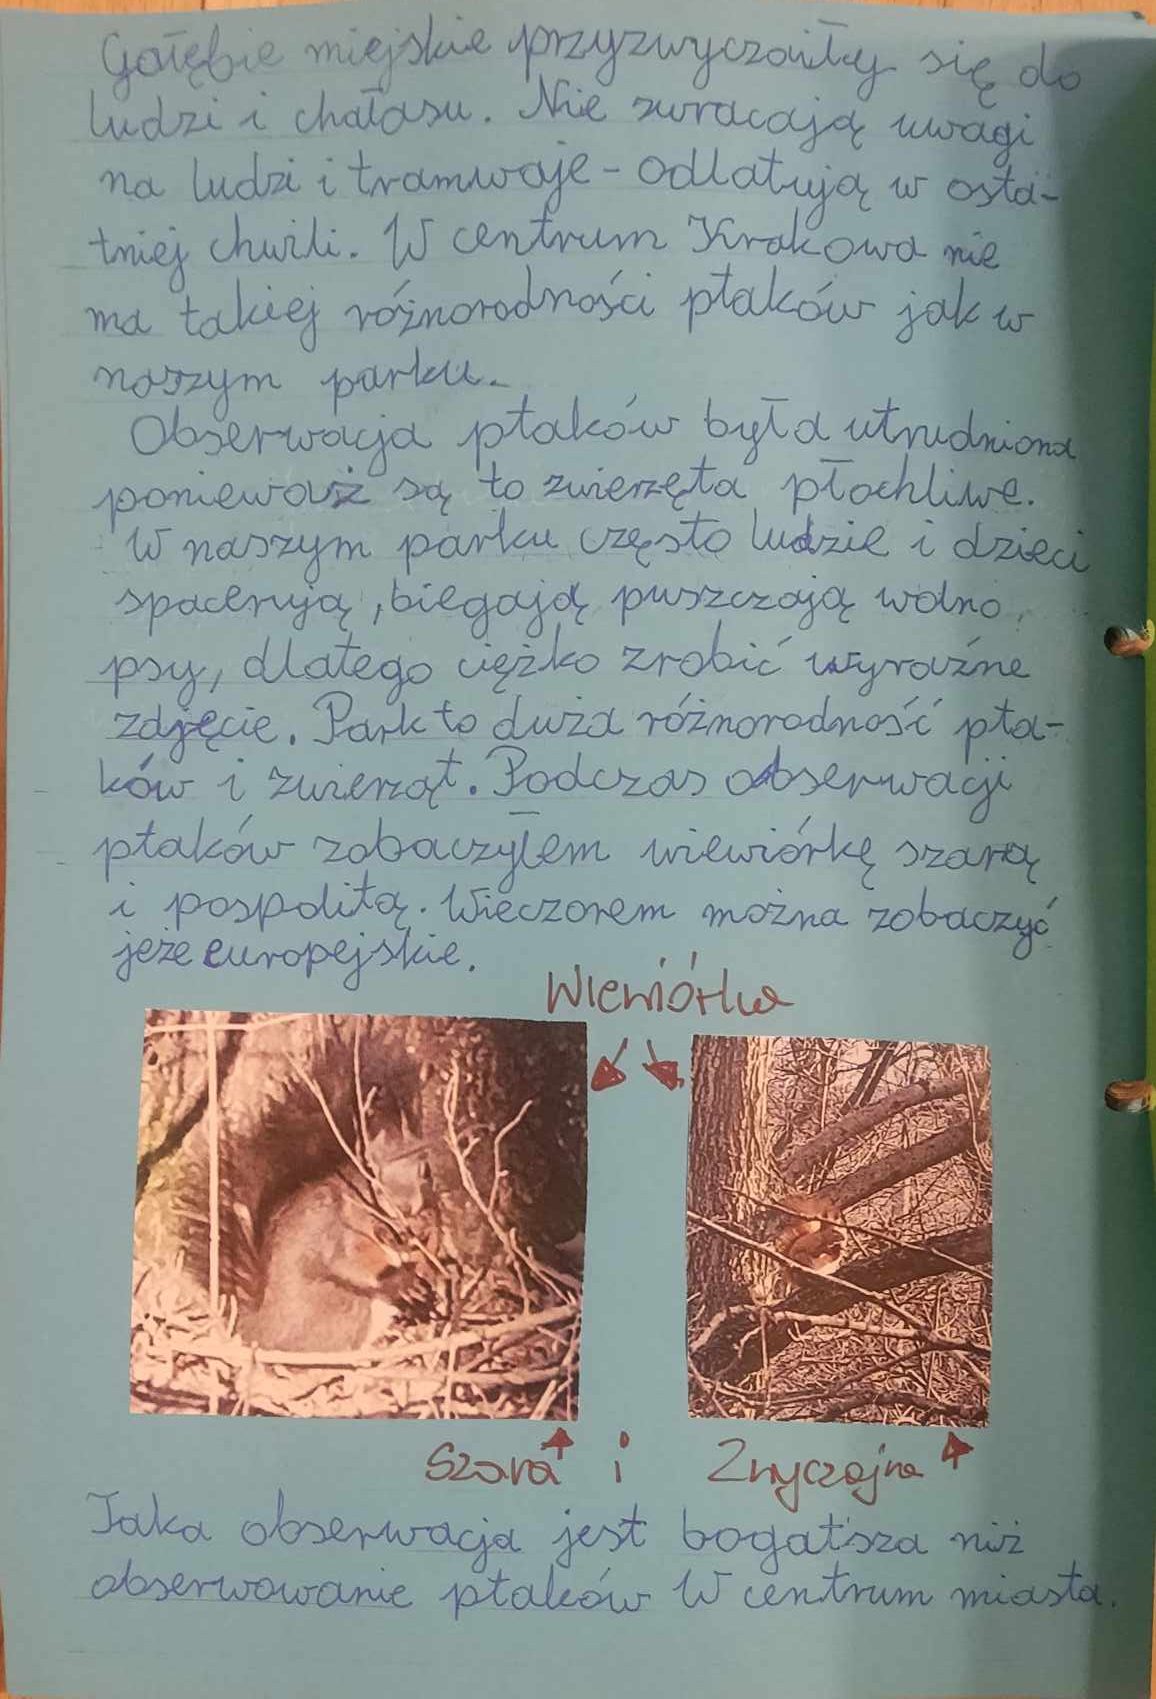 Gołębie miejskie przyzwyczaiły się do
ludzi i chałasu. Nie zwracają uwagi
na ludzi i tramwaje - odlatują w osta-
tniej chwili. W centrum Krakowa nie
ma takiej różnorodności ptaków jak w
naszym parku.
Obserwacja ptaków była utrudniona
ponieważ są to zwierzęta płochliwe.
W naszym parku często ludzie i dzieci
spacerują, biegają puszczają wolno
psy, dlatego ciężko zrobić wyraźne
zdjęcie. Park to duża różnorodność pta-
ków i zwierząt. Podczas obserwacji
ptaków zobaczyłem wiewiórkę szarą
i pospolitą. Wieczorem można zobaczyć
jeże europejskie.
Wiewiórka
Szara i Zwyczajna
Taka obserwacja jest bogatsza niż
obserwowanie ptaków W centrum miasta.